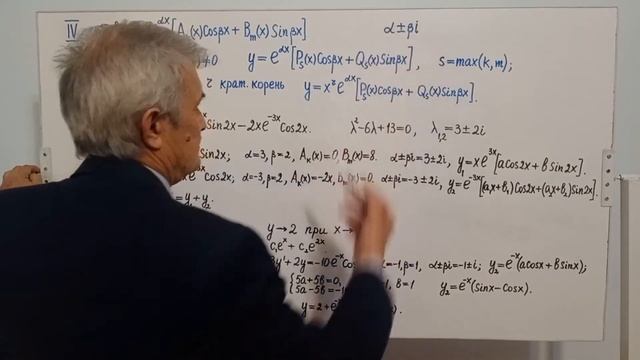 IV αx[Aₖ(x)Cosβx + Bₘ(x)Sinβx] α±βi
)≠0 y=e^αx[Pₛ(x)Cosβx + Qₛ(x)Sinβx], s=max(k,m);
крат. корень y=xʳe^αx[Pₛ(x)Cosβx + Qₛ(x)Sinβx].
Sin2x-2xe^-3x Cos2x. λ²-6λ+13=0, λ₁,₂=3±2i
Sin2x; α=3, β=2, Aₖ(x)=0, Bₘ(x)=8. α±βi=3±2i, y=xe^3x[aCos2x + bSin2x].
Cos2x; α=-3, β=2, Aₖ(x)=-2x, Bₘ(x)=0. α±βi=-3±2i, y₂=e^-3x[(a₁x+b₁)Cos2x+(a₂x+b₂)Sin2x].
y₁+y₂.
y→2 при x→
c₁eˣ + c₂e^2x
3y'+2y=-10e^-x Cos =-1, β=1, α±βi=-1±i; y₂=e^-x(acosx+bsinx);
{5a+5b=0, 5a-5b=-1 b=1 y₂=e^-x(sinx-cosx).
y=2+e^-x